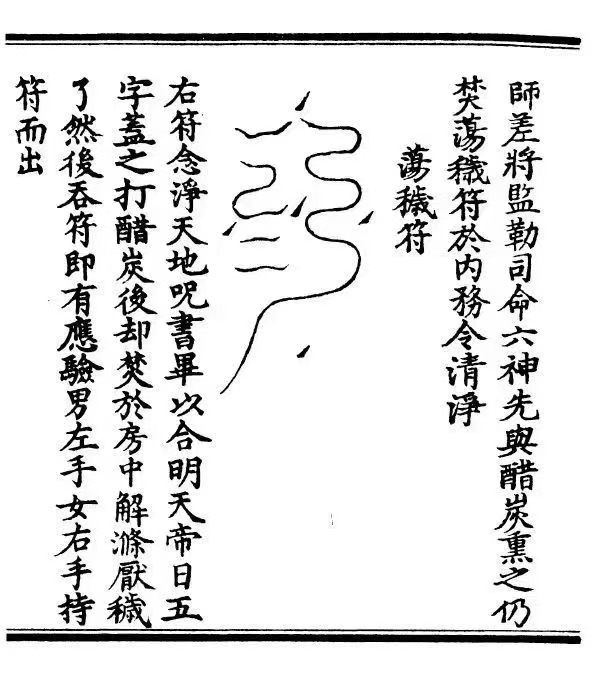 師差將監勒司命六神先與醋炭熏之仍
焚蕩穢符於內務令清淨
蕩穢符
右符念淨天地呪書畢以合明天帝日五
字蓋之打醋炭後却焚於房中解滌厭穢
了然後吞符即有應驗男左手女右手持
符而出